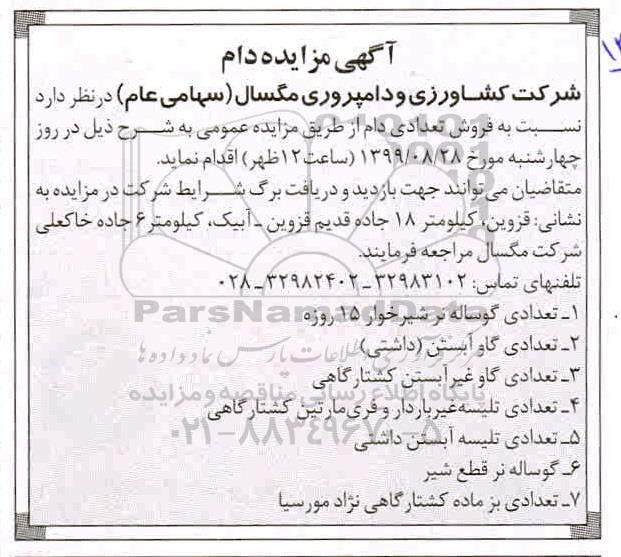 آگهی مزایده دام
شرکت کشاورزی و دامپروری مگسال (سهامی عام) در نظر دارد
نسبت به فروش تعدادی دام از طریق مزایده عمومی به شرح ذیل در روز
چهارشنبه مورخ ۱۳۹۹/۰۸/۲۸ (ساعت ۱۲ ظهر) اقدام نماید.
متقاضیان می‌توانند جهت بازدید و دریافت برگ شرایط شرکت در مزایده به
نشانی: قزوین، کیلومتر ۱۸ جاده قدیم قزوین ـ آبیک، کیلومتر ۶ جاده خاکعلی
شرکت مگسال مراجعه فرمایند.
تلفنهای تماس: ۳۲۹۸۳۱۰۲ ـ ۳۲۹۸۲۴۰۲ ـ ۰۲۸
۱ـ تعدادی گوساله نر شیرخوار ۱۵ روزه
۲ـ تعدادی گاو آبستن (داشتی)
۳ـ تعدادی گاو غیرآبستن کشتارگاهی
۴ـ تعدادی تلیسه غیرباردار و فری‌مارتین کشتارگاهی
۵ـ تعدادی تلیسه آبستن داشتی
۶ـ گوساله نر قطع شیر
۷ـ تعدادی بز ماده کشتارگاهی نژاد مورسیا
ParsNamadData
مرکز فرآوری اطلاعات پارس نماد داده‌ها
پایگاه اطلاع رسانی مناقصه و مزایده
۰۲۱-۸۸۳۴۹۶۷۰-۵